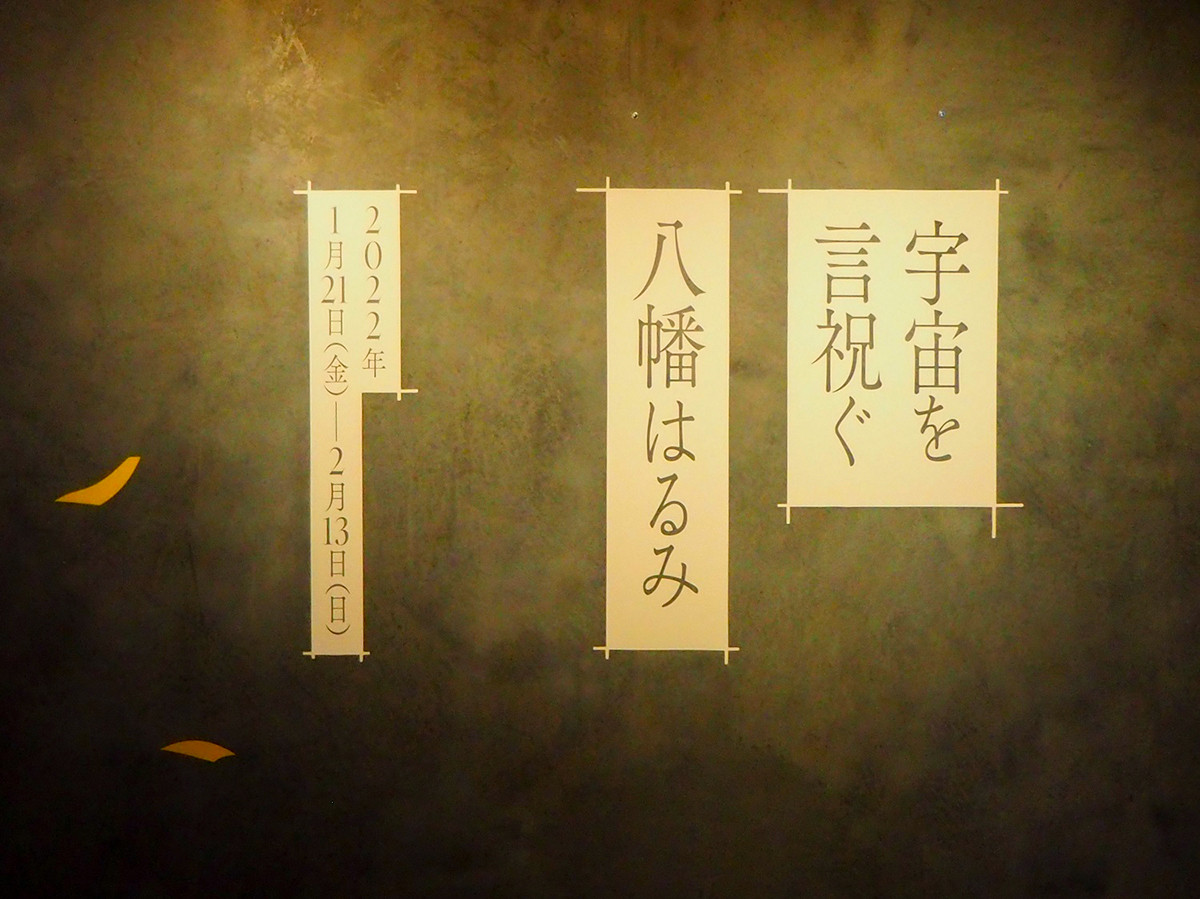 宇宙を
言祝ぐ
八幡はるみ
2022年
1月21日(金)—2月13日(日)